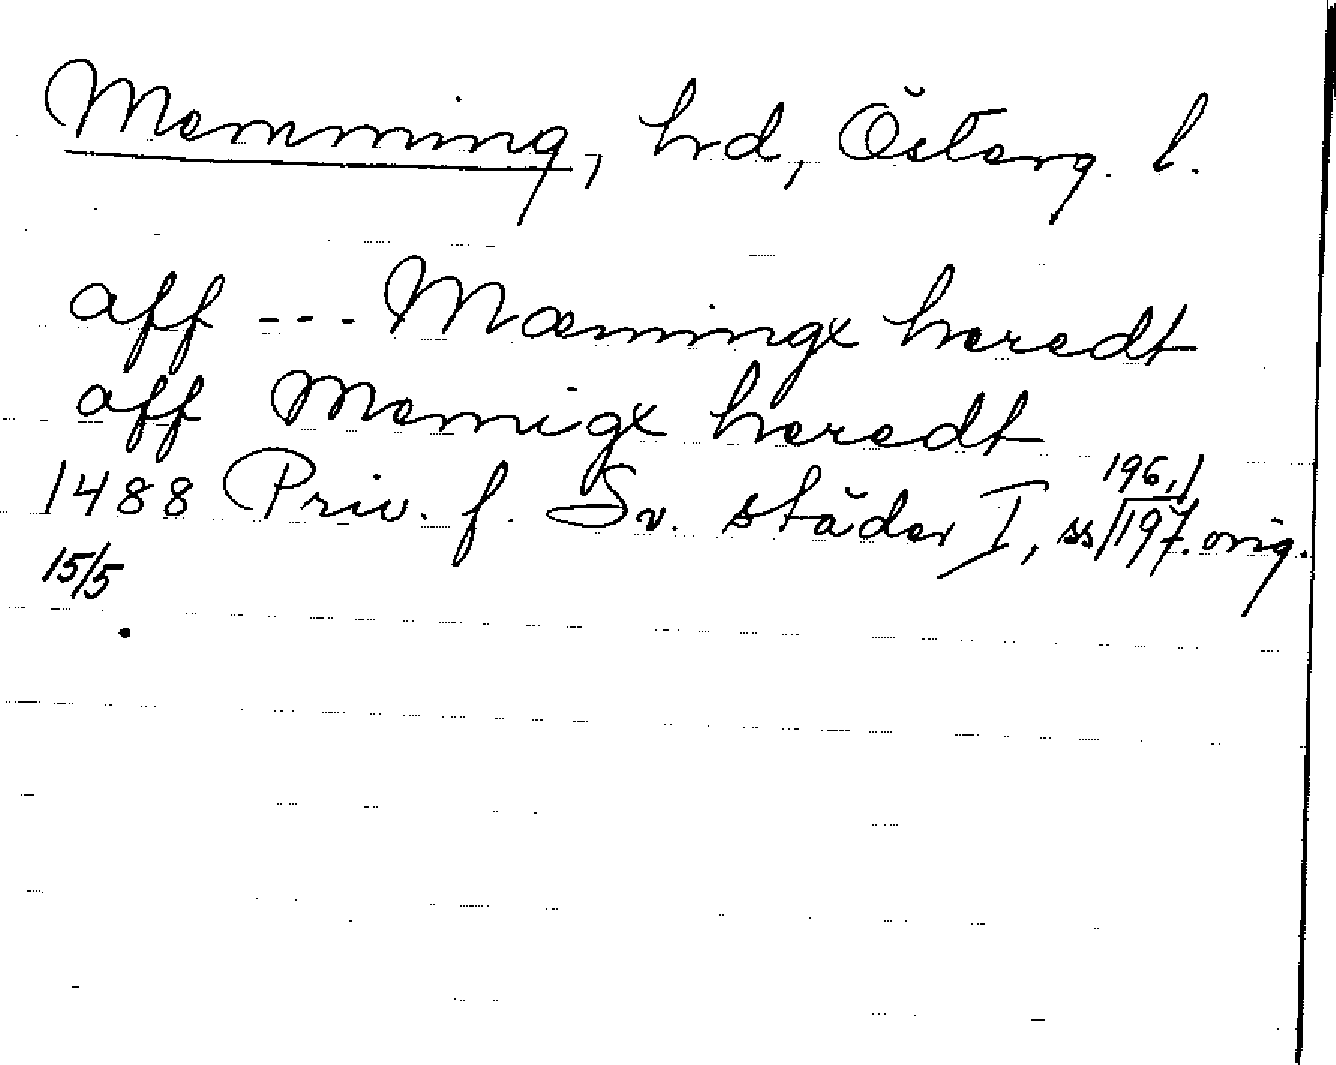 Memming, hrd, Österg. l.
aff --- Mæmingx heredt
aff Memigx heredt
1488 Priv. f. Sv. städer I, ss 196, 197. orig.
15/5